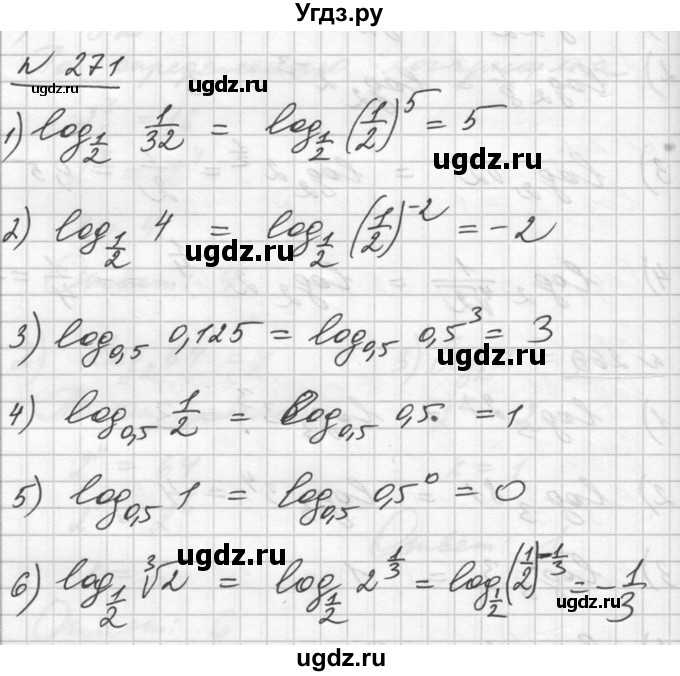 Угдз.ру
N 271
ugdz.ru
1) log_{1/2} 1/32 = log_{1/2} (1/2)^5 = 5
ugdz.ru
ugdz.ru
2) log_{1/2} 4 = log_{1/2} (1/2)^{-2} = -2
ugdz.ru
3) log_{0,5} 0,125 = log_{0,5} 0,5^3 = 3
ugdz.ru
4) log_{0,5} 1/2 = log_{0,5} 0,5 = 1
ugdz.ru
5) log_{0,5} 1 = log_{0,5} 0,5^0 = 0
ugdz.ru
6) log_{1/2} ∛2 = log_{1/2} 2^{1/3} = log_{1/2} (1/2)^{-1/3} = -1/3
ugdz.ru
ugdz.ru
ugdz.ru